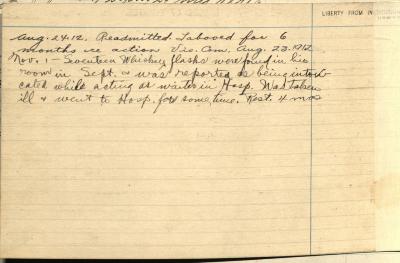 LIBERTY FROM IN
Aug. 24.12. Readmitted. Taboved for 6
months see action Vis. Com. Aug. 23.1912.
Nov. 1 - Seventeen Whiskey flasks were found in his
room in Sept. & was reported as being intoxi
cated while acting as waiter in Hosp. Was taken
ill & went to Hosp. for some time. Rest. 4 mos